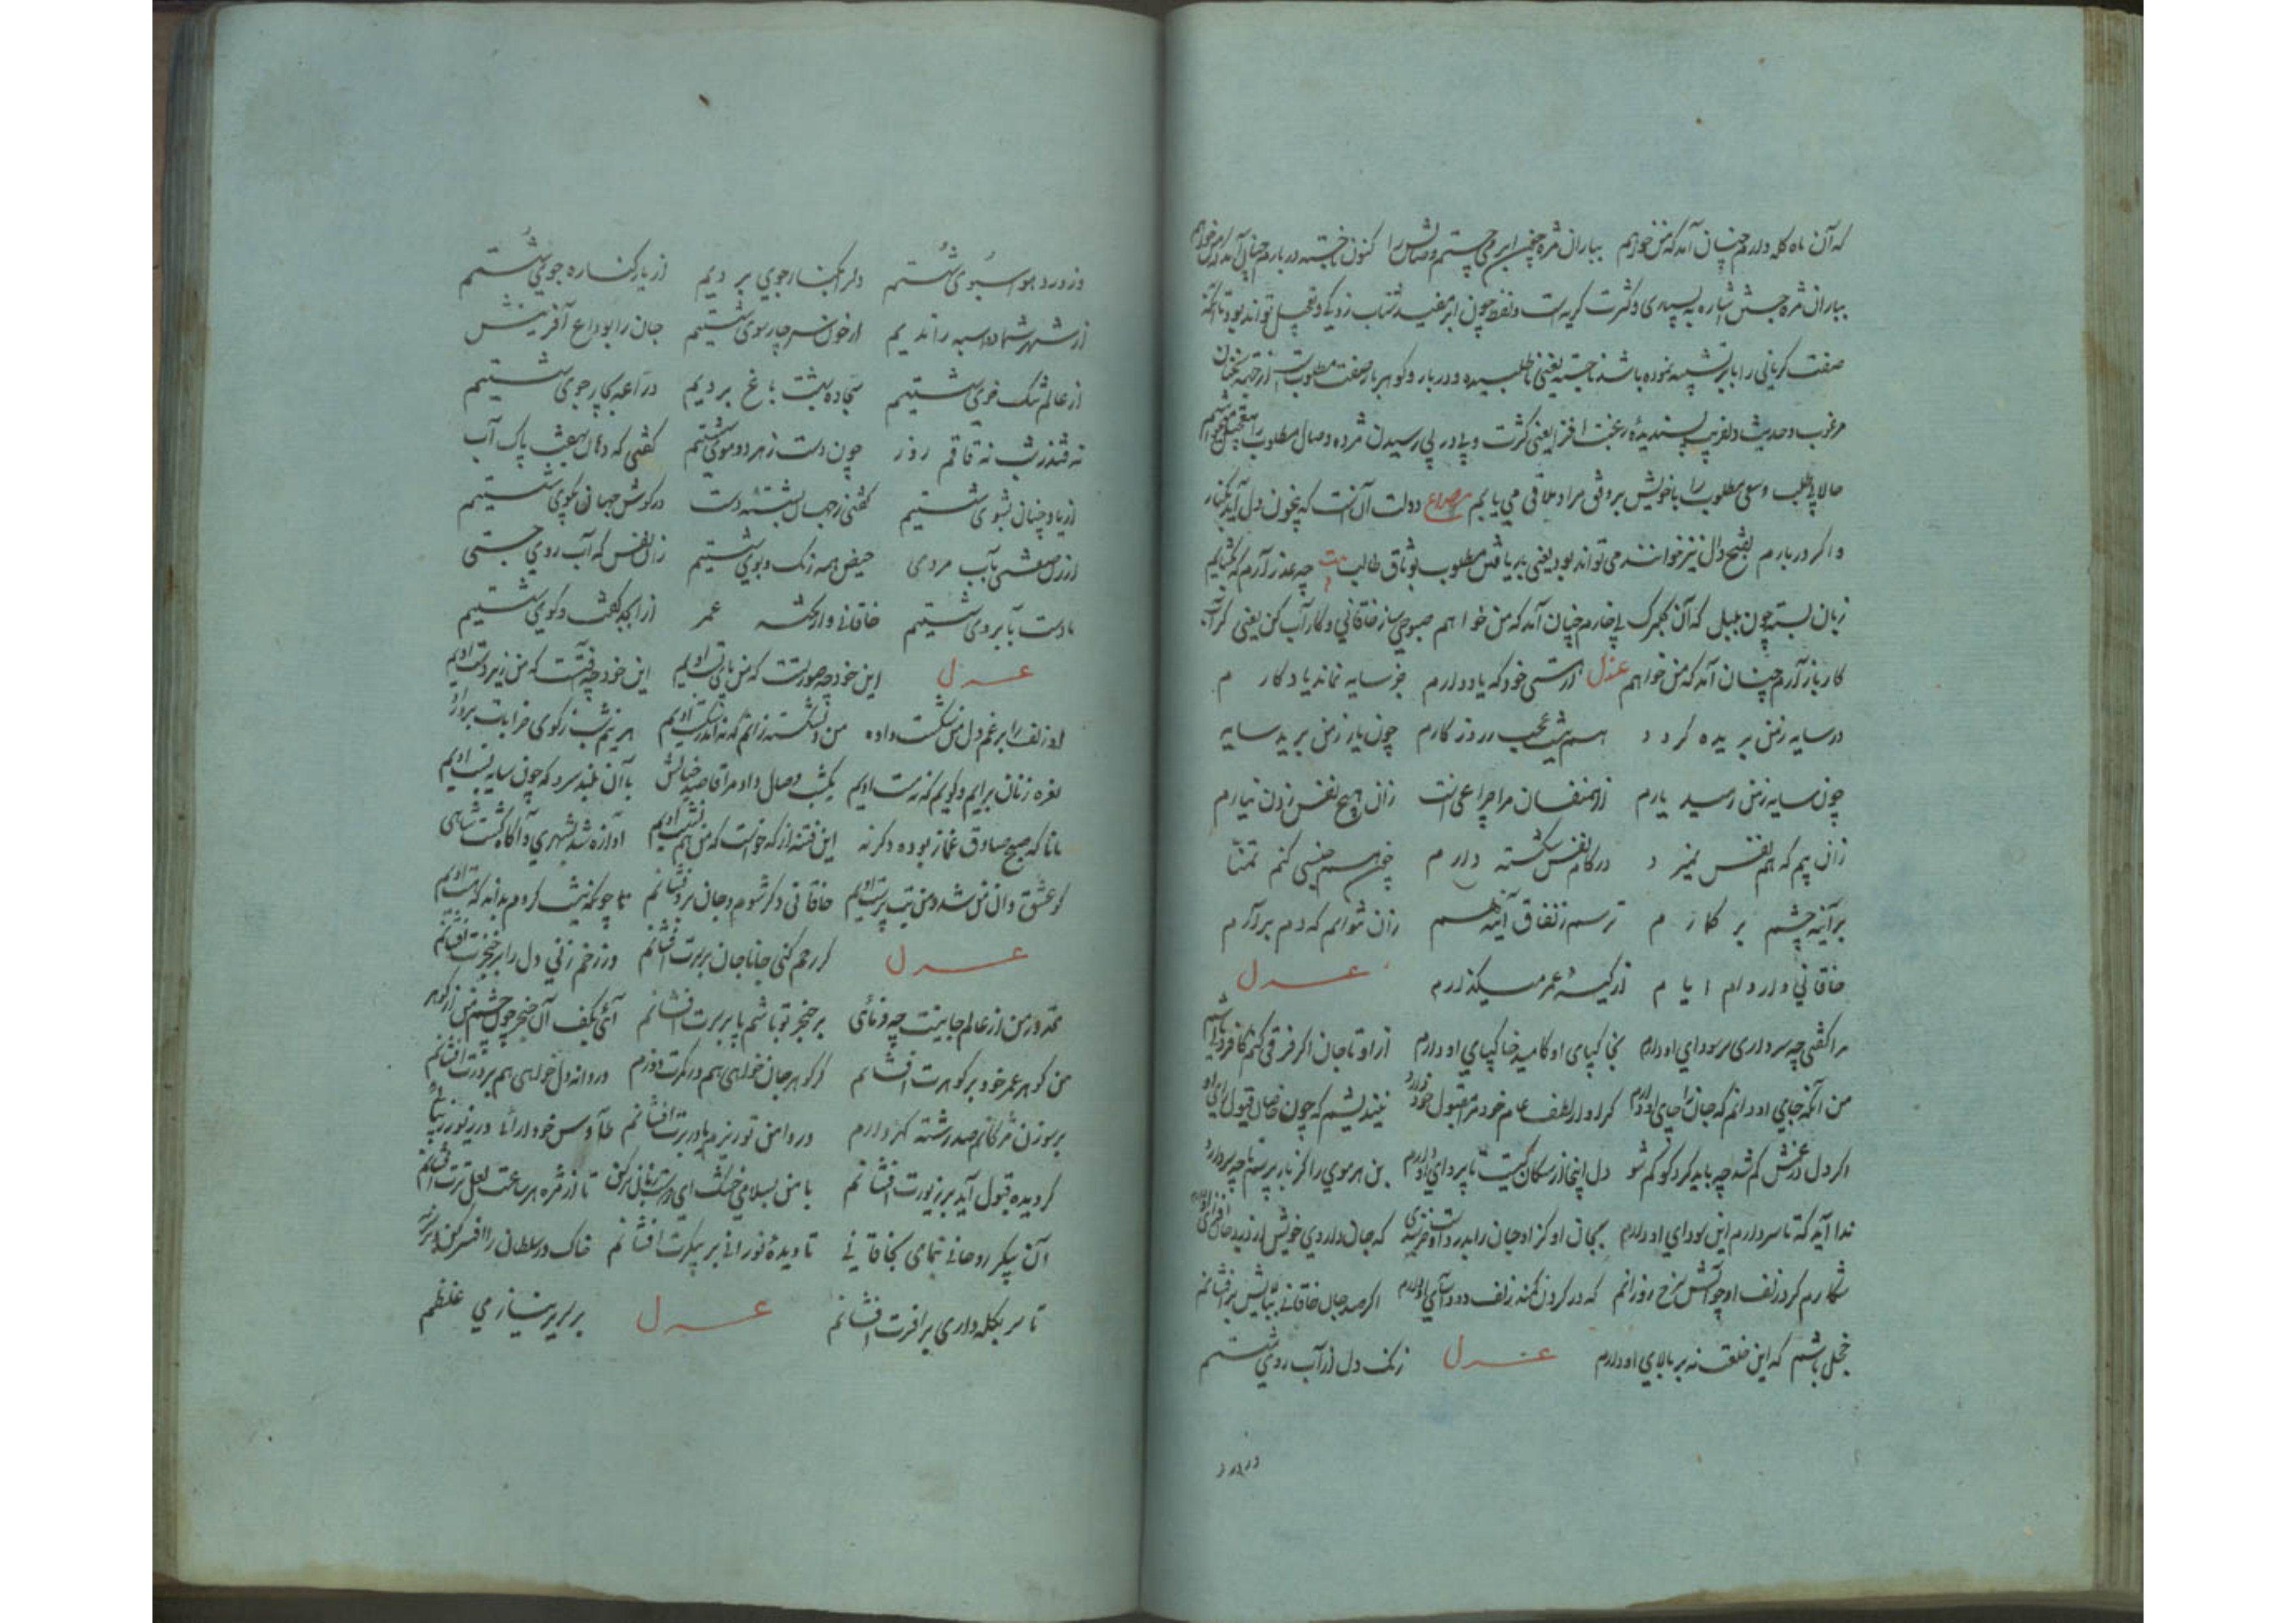 که آن ماه کله دارم چنان آمد که من خواهم بباران مژه چون ابر می جستم وصالش را کنون ناجسته دربارم چنان آمد که من خواهم
بباران مژه جستن اشاره به بسیاری و کثرت گریه است و لفظ چون ابر مفید شتاب زدگی و تعجیل تواند بود تا آنکه
صفت گریانی را بابر تشبیه نموده باشد ناجسته یعنی ناطلبیده و دربار و گوهربار صفت مطلوبست از جهة سخنان
مرغوب و حدیث دلفریب پسندیدۀ رغبت افزا یعنی کثرت و پی در پی رسیدن مژده وصال مطلوب
حالا بی طلب و سعی مطلوب را با خویش بر وفق مراد ملاقی می یابم مصراع دولت آن است که بیخون دل آید بکنار
و اگر دربارم بفتح دال نیز خوانند می تواند بود یعنی به یافتن مطلوب بوثاق طالب بیت چه عذر آرم که بگشایم
زبان بسته چون بلبل که آن گلبرگ بی خارم چنان آمد که من خواهم صبوحی ساز خاقانی و کار آب کن یعنی که آب
کار باز آرم چنان آمد که من خواهم غزل از هستی خود که یاد دارم جز سایه نماند یادکارم
در سایه ز من بریده گردد هم نیست عجب ز روزگارم چون یار ز من برید سایه
چون سایه ز من رمید یارم از همنفسان مرا چراغی است زان هیچ نفس زدن نیارم
زان بیم که هم نفس بمیرد در کام نفس شکسته دارم چون هم جنسی کنم تمنا
بر آینه چشم برگمارم ترسم ز نفاق آینه هم زان نتوانم که دم برآرم
خاقانی وار وام ایام از کیسهٔ عمر میگذارم غزل
مرا گفتی چه سر داری سر سودای او دارم بخاک پای او کامید خاک پای او دارم از او تا جان اگر فرقی کنم کافر دلی باشم
من آنکه جای او دانم که جان را جای او دارم گر او از لطف عام خود مرا مقبول خود دارد نیندیشم که چون خاصان قبول رای او
اگر دل در غمش گم شد چه باید کرد گو گم شو دل اینجا از سگان کیست تا پروای او دارم بن هر موی را گر باز پرسند تا چه پردازد
ندا آید که تا سر دارم این سودای او دارم بجان او کز او جان را بدرد او خرسندی که جان داروی خویش از درد جان افزای او دارم
شکارم کرد زلف او چو آتش سرخ رو زانم که در گردن کمند زلف دود آسای او دارم اگر صد جان خاقانی ببالایش برافشانم
خجل باشم که این خلقت نه بر بالای او دارم غزل زنگ دل از آب روی شستیم
وز ورد هوا سبوی شستیم دل را بکنار جوی بردیم از یار کناره جوی شستیم
از شهر شما دواسبه راندیم از خون سر چار سوی شستیم جان را بوداع آفرینش
از عالم تنگ خوی شستیم سجاده بهشت باغ بردیم دراعه بچار جوی شستیم
نه قندز شب نه قاقم روز چون دست ز هر دو موی شستیم گفتی که دهان بهفت پاک آب
از یاد چنان بشوی شستیم گفتی ز جهان بشستهٔ دست در گوش جهان بگوی شستیم
از زلف معشق بآب مردمی حیض همه رنگ و بوی شستیم زان نفس که آب روی جستی
ما دست بآبروی شستیم خاقانی وار تخته عمر از ابجد گفت و گوی شستیم
غزل این خود چه صورتست که من پای بست اویم این خود چه فتنه است که من زیر دست اویم
او زلف را برغم دل من شکست داده من دلشکسته زانم که اندر شکست اویم هر نیم شب ز کوی خرابات برآرد
نعره زنان برآیم و گویم که مست اویم یکشب وصال داد مرا قاصد خیالش با آن بلند سرو که چون سایه پست اویم
مانا که صبح صادق غماز بوده و گرنه این فتنه از که خواست که من هم نشست اویم آوازه شد بشهری و آگاه گشت شاهی
کو عشق دان من شد و من بت پرست اویم خاقانی دگر شوم و جان برو فشانم تا چونکه نیست کردم بداند که هست اویم
غزل گر رحم کنی جانا جان بر سرت افشانم ور زخم زنی دل را بر خنجرت افشانم
مقدور من از عالم جانیست چه فرمائی بر خنجر تو باشم یا بر سرت افشانم آئی بکف آن خنجر چون چشم من از گوهر
من گوهر عمر خود بر گوهرت افشانم گر گوهر جان خواهی هم در کمرت دوزم ور دانه دل خواهی هم بر درت افشانم
بر سوزن مژگانم صد رشته گهر دارم در دامن تو ریزم یا در برت افشانم طاوس خود آرائی در زیور زیبائی
گر دیده قبول آید بر زیورت افشانم با من بسلامی خشک ای دوست زبان تر کن تا از مژه هر ساعت لعل ترت افشانم
آن پیکر روحانی بنمای بخاقانی تا دیدهٔ نورانی بر پیکرت افشانم خاک در سلطان را افسر کن و بر سر نه
تا سر بکله داری بر افسرت افشانم غزل بر سریر نیاز می غلطم
در درد